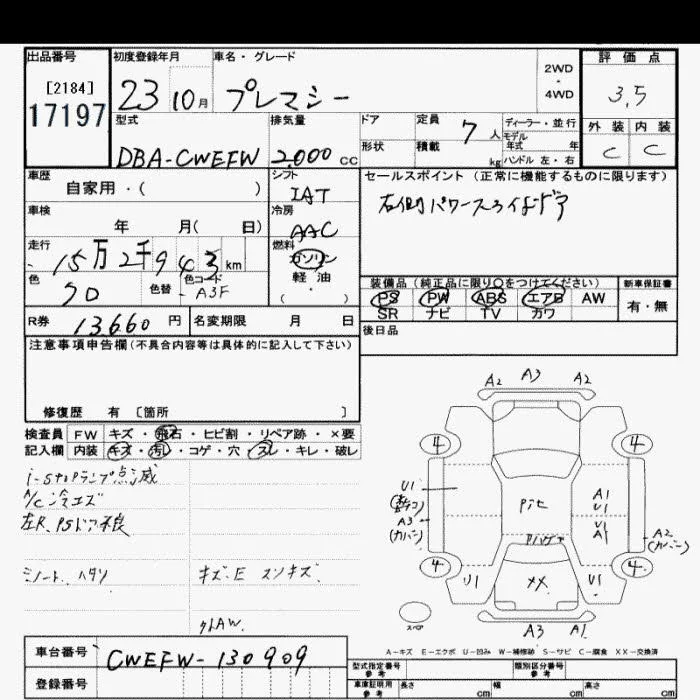 出品番号
[2184]
17197
初度登録年月
23 10月
車名・グレード
プレマシー
2WD
・
4WD
評価点
3,5
型式
DBA-CWEFW
排気量
2,000 cc
ドア
形状
定員
7人
積載
kg
ディーラー・並行
モデル
年式 年
ハンドル 左・右
外装 内装
C C
車歴
自家用・( )
シフト
IAT
セールスポイント (正常に機能するものに限ります)
右側パワースライドドア
車検
年 月( 日)
冷房
AAC
走行
15万2千943km
燃料
ガソリン
軽油
・
( )
色
クロ
色替
色コード
A3F
装備品 (純正品に限り○をつけてください)
新車保証書
PS PW ABS エアB AW
SR ナビ TV カワ
有・無
R券 13660円
名変期限 月 日
後日品
注意事項申告欄(不具合内容等は具体的に記入して下さい)
修復歴 有 [箇所 ]
検査員
記入欄
FW キズ・飛石・ヒビ割・リペア跡・×要
内装 キズ・汚レ・コゲ・穴・スレ・キレ・破レ
i-stopランプ点滅
A/C冷エズ
左R.PSドア不良
シート.ハタリ
キズ.E スソキズ.
外AW.
A2 A3 A2
4 4
U1
A3
(カバー)
A1
U1
U1
A1
A2
(カバー)
4 4
U1 XX U1
スペア
A3 A1
A-キズ E-エクボ U-凹み W-補修跡 S-サビ C-腐食 XX-交換済
車台番号 CWEFW-130909
登録番号
型式指定番号
参考
類別区分番号
参考
車庫証明用
参考
長さ cm 幅 cm 高さ cm